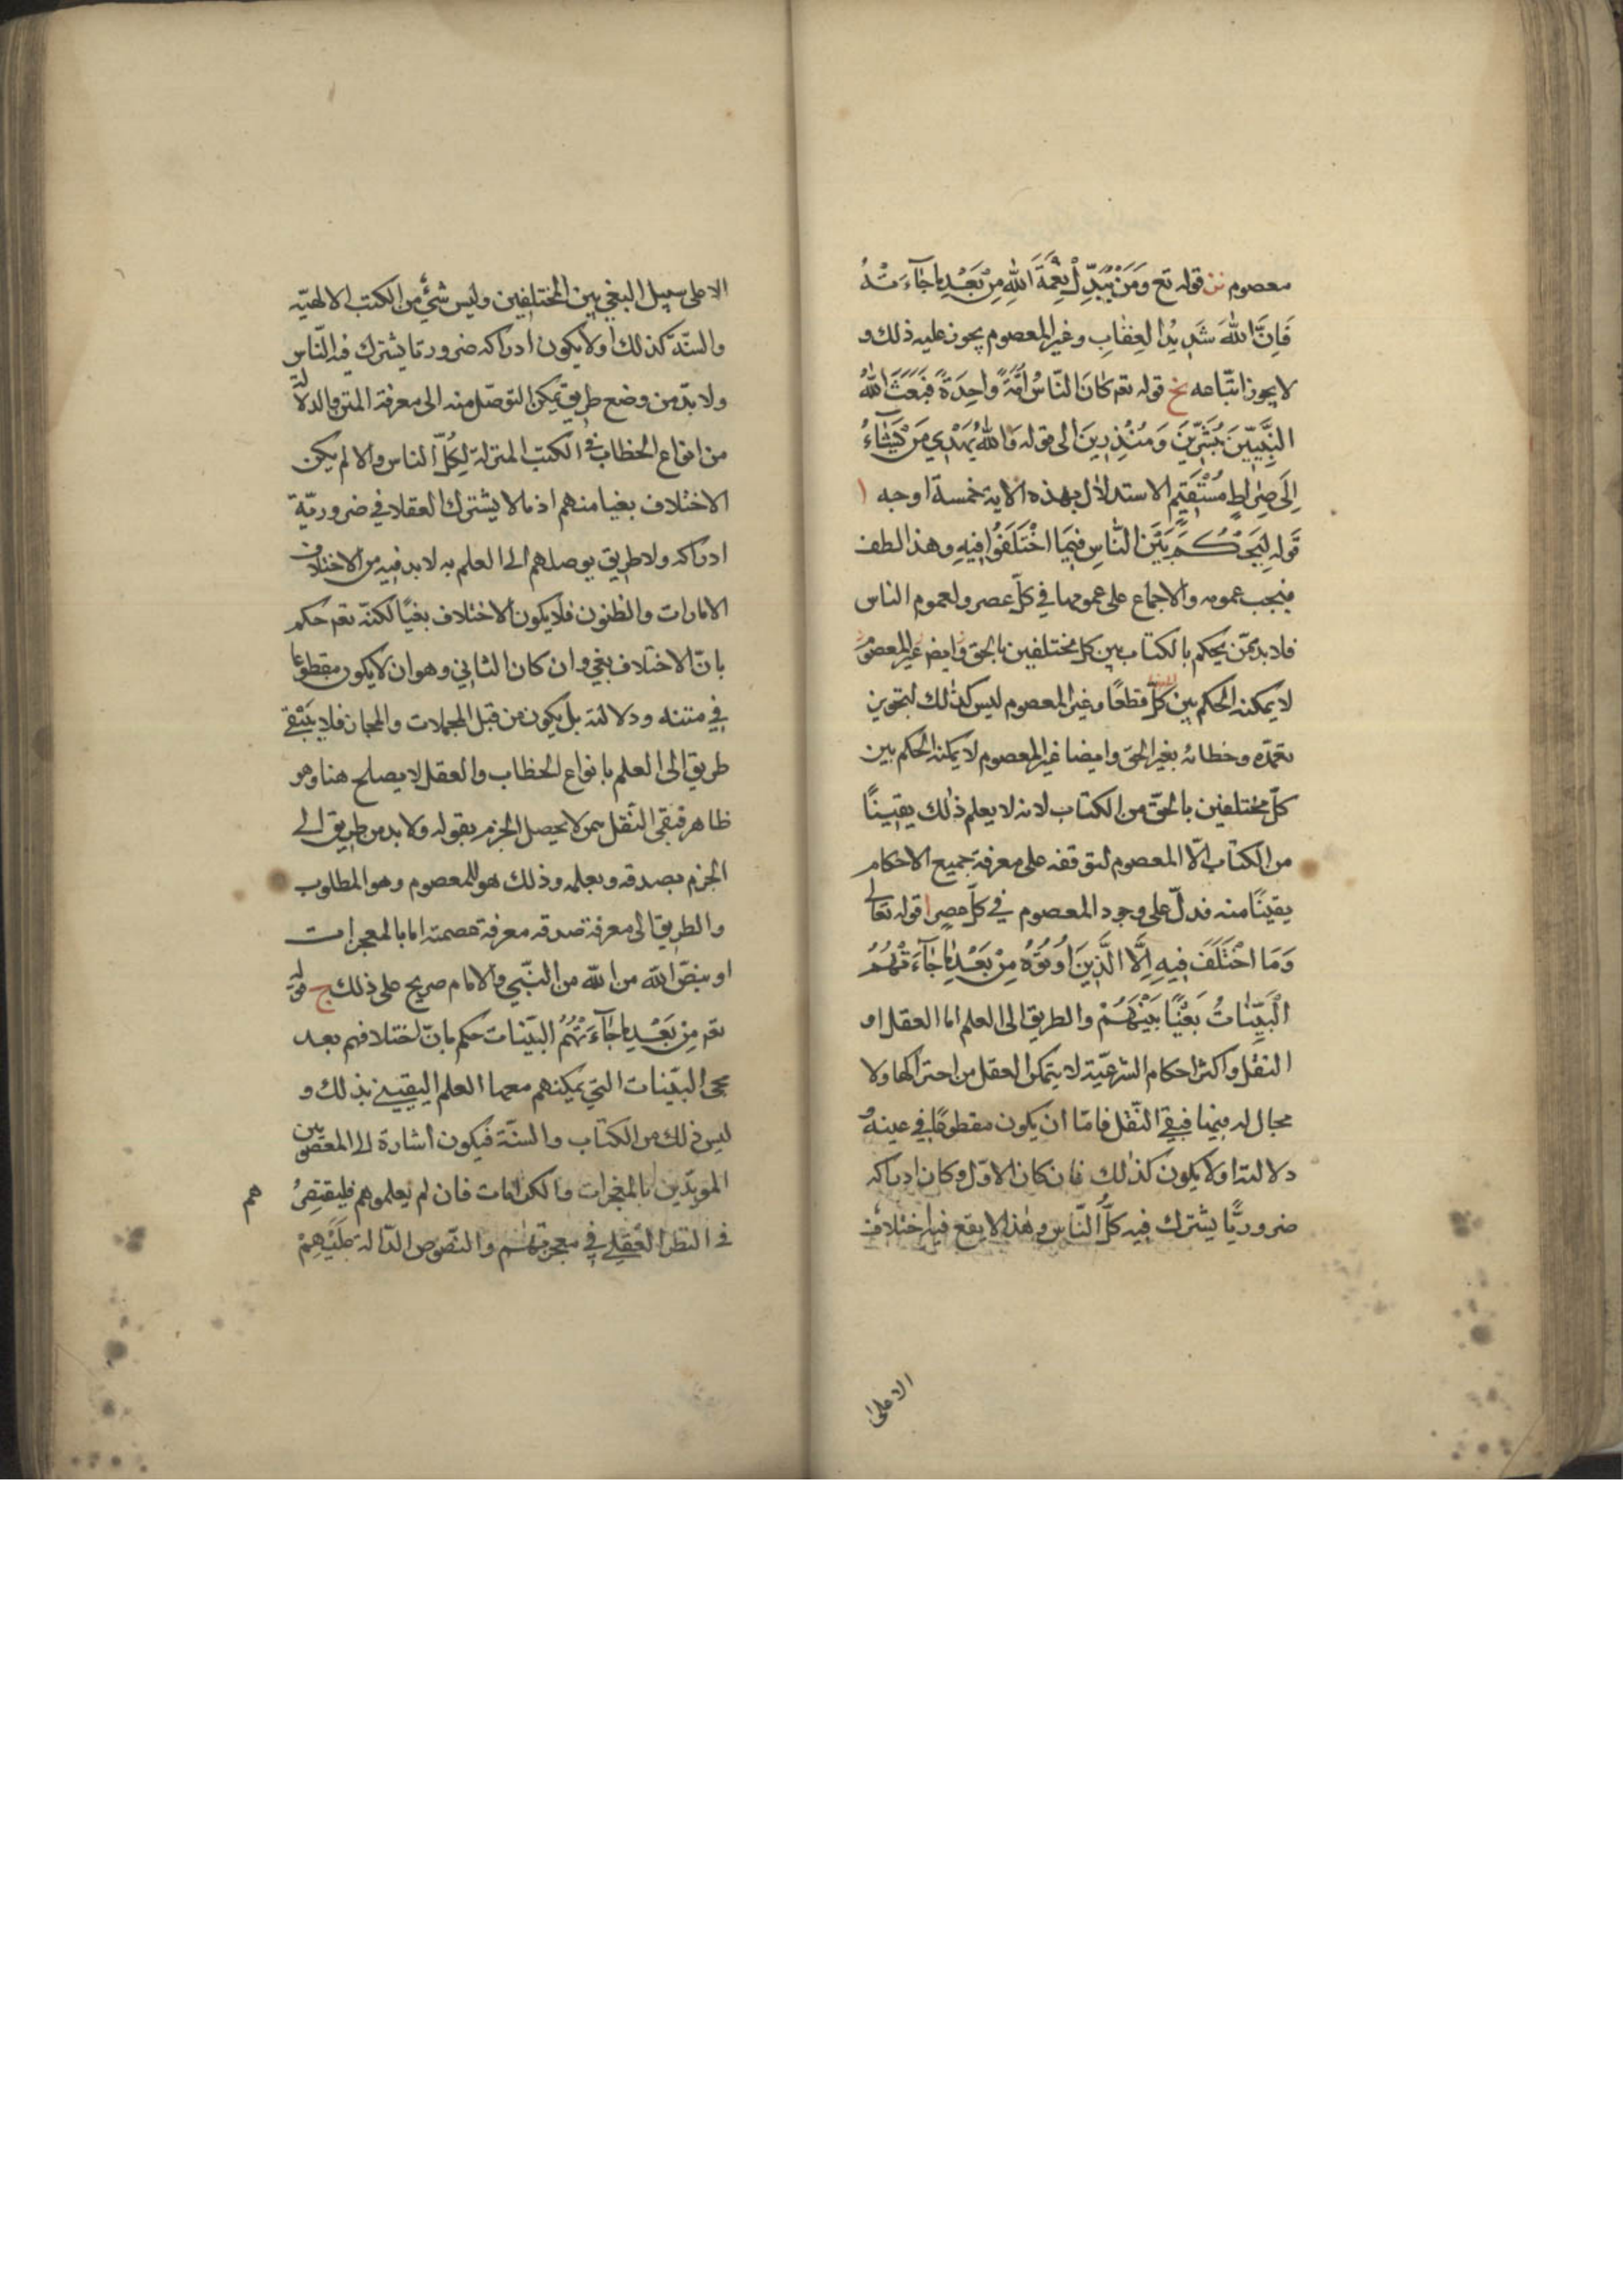 معصوم نز قوله تع وَمَنْ يُبَدِّلْ نِعْمَةَ اللهِ مِنْ بَعْدِ مٰا جٰاۤءَتْهُ
فَاِنَّ اللهَ شَدِيدُ الْعِقٰابِ وغير المعصوم يجوز عليه ذلك و
لا يجوز اتّباعه نح قوله تعم كٰانَ النّٰاسُ اُمَّةً وٰاحِدَةً فَبَعَثَ اللهُ
النَّبِيّٖينَ مُبَشِّرٖينَ وَمُنْذِرٖينَ الى قوله وَاللهُ يَهْدٖي مَنْ يَشٰاۤءُ
اِلَى صِرٰاطٍ مُسْتَقٖيمٍ الاستدلال بهذه الاية خمسة اوجه ا
قوله لِيَحْكُمَ بَيْنَ النّٰاسِ فِيمَا اخْتَلَفُوا فِيهِ وهذا لطف
فيجب عمومه والاجماع على عمومها في كلّ عصر ولعموم الناس
فلا بد ممّن يحكم بالكتاب بين كل مختلفين بالحق وايض غير المعصوم
لا يمكنه الحكم بين كلّ قطعًا وغير المعصوم ليس كذلك لتجويز
تعمّده وخطائه بغير الحق وايضا غير المعصوم لا يمكنه الحكم بين
كلّ مختلفين بالحقّ من الكتاب لانه لا يعلم ذٰلك يقينًا
من الكتاب الّا المعصوم لتوقفه على معرفة جميع الاحكام
يقينًا منه فدلّ على وجود المعصوم في كلّ عصر ا قوله تعالى
وَمَا اخْتَلَفَ فِيهِ اِلَّا الَّذِينَ اُوتُوهُ مِنْ بَعْدِ مٰا جٰاۤءَتْهُمُ
الْبَيِّنٰاتُ بَغْيًا بَيْنَهُمْ والطريق الى العلم اما العقل او
النقل واكثر احكام الشرعيّة لا يتمكن العقل من احتراكها ولا
مجال له فيها فيبقى النّقل فامّا ان يكون مقطوعًا في عينه و
دلالته او لا يكون كذٰلك فان كان الاوّل وكان ادراكه
ضروريًّا يشترك فيه كلُّ النّاس وهٰذا لا يقع فيه اختلاف
الا على
الا على سبيل البغي بين المختلفين وليس شئ من الكتب الالهيّه
والسنّة كذلك او لا يكون ادراكه ضروريا يشترك فيه النّاس
ولا بدّ من وضع طريق يمكن التوصّل منه الى معرفة المتن والدلالة
من انواع الخطاب في الكتب المنزلة لِكُلّ الناس والا لم يكن
الاختلاف بغيا منهم اذ ما لا يشترك العقلا في ضروريّة
ادراكه ولا طريق يوصلهم الى العلم به لا بد فيه من الاختلاف
الامارات والظنون فلا يكون الاختلاف بغيًا لكنّه تعم حكم
بانّ الاختلاف بغي وان كان الثاني وهو ان لا يكون مقطوعا
في متنه ودلالته بل يكون من قبل المجملات والمجاز فلا يَبْقى
طريق الى العلم بانواع الخطاب والعقل لا يصلح هنا وهو
ظاهر فيبقى النّقل ممن لا يحصل الجزم بقوله ولا بد من طريق الى
الجزم بصدقه وبعلمه وذلك هو المعصوم وهو المطلوب
والطريق الى معرفة صدقه معرفة عصمته اما بالمعجزات
او بنصّ الله من الله من النّبي والامام صريح على ذلك ج قوله
تعم مِنْ بَعْدِ مٰا جٰاۤءَتْهُمُ البيّنات حكم بانّ اختلافهم بعد
مجئ البيّنات التي يمكنهم معها العلم اليقيني بذلك و
ليس ذلك من الكتاب والسنّة فيكون اشارة الى المعصومين
المويدّين بالمعجزات والكرامات فان لم يعلموهم فليقتض
هم
في النظر العقلي في معجزتهم والنّصوص الدّالة عَلَيْهِمْ